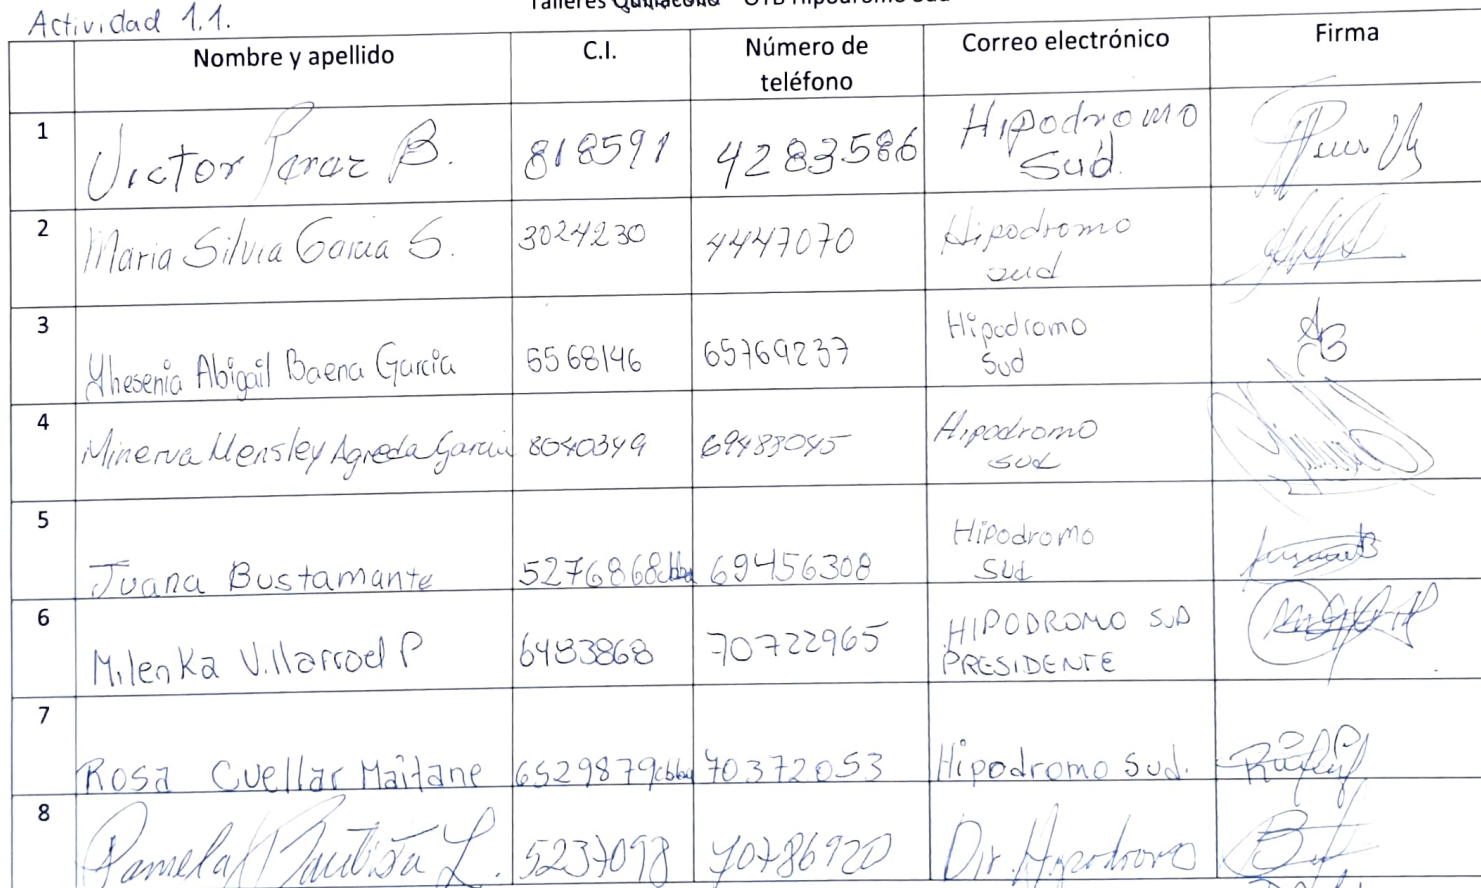 Talleres Quillacollo - OTB Hipódromo Sud
Actividad 1.1.
Nombre y apellido C.I. Número de teléfono Correo electrónico Firma
1 Victor Peraz B. 818591 4283586 Hipodromo Sud.
2 Maria Silvia Garcia S. 3024230 4447070 Hipodromo sud
3 Yhesenia Abigail Baena Garcia 5568146 65769237 Hipodromo Sud
4 Minerva Wensley Agreda Garcia 8040349 69483045 Hipodromo sud
5 Juana Bustamante 5276868cbba 69456308 Hipodromo Sud
6 Milenka Villarroel P 6483868 70722965 HIPODROMO SUD PRESIDENTE
7 Rosa Cuellar Maitane 6529879cbba 70372053 Hipodromo Sud.
8 Pamela Bautista L. 5237098 70786920 Dir. Hipodromo